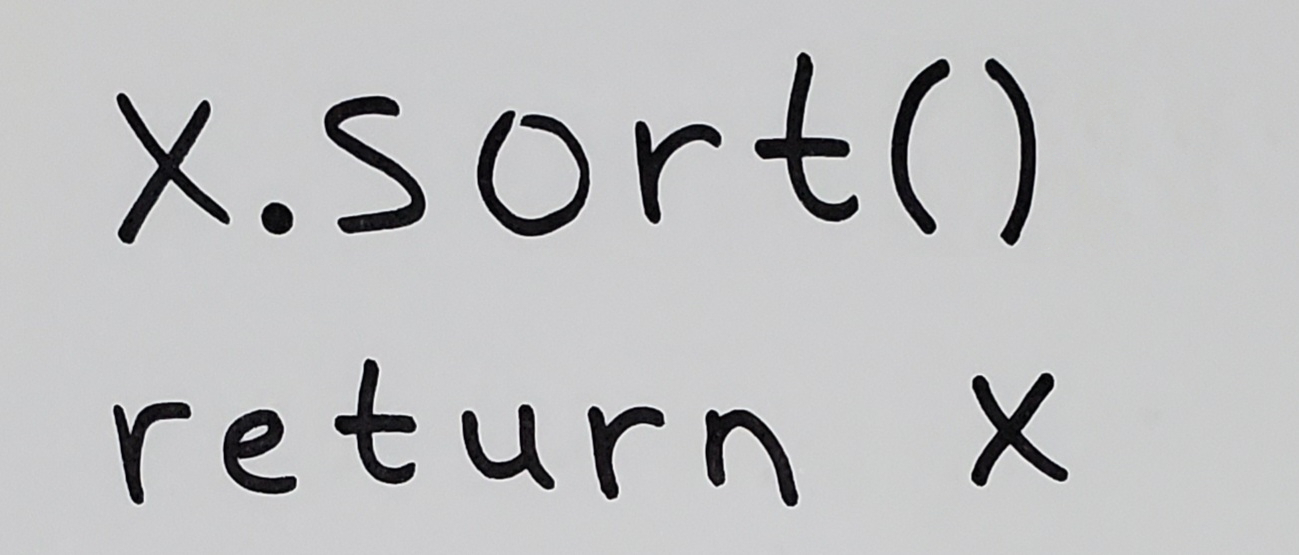 x.sort()
return x